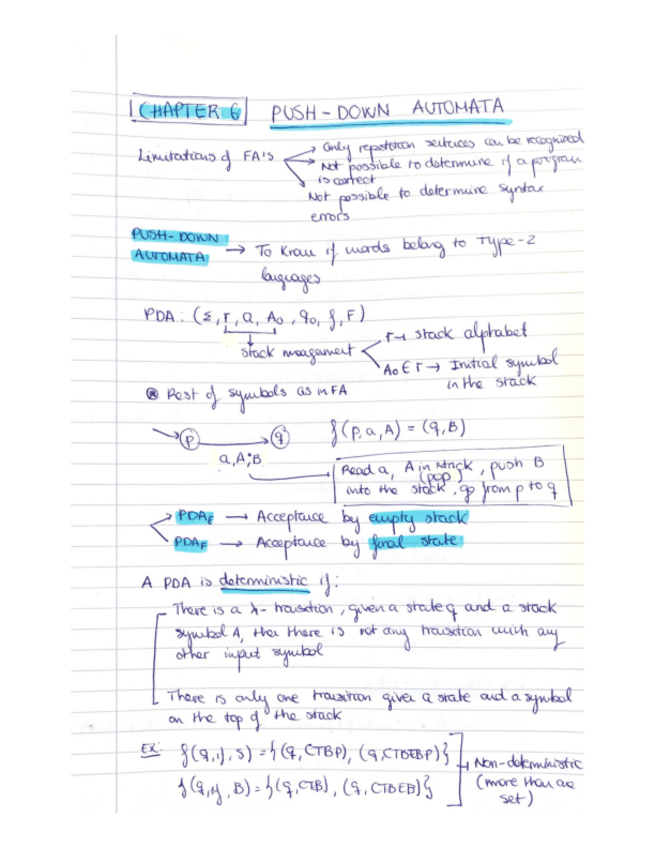 CHAPTER 6 PUSH-DOWN AUTOMATA
Limitations of FA's → Only repetition sentences can be recognized
→ Not possible to determine if a program
is correct
Not possible to determine syntax
errors
PUSH-DOWN
AUTOMATA → To know if words belong to Type-2
languages
PDA: (Σ, Γ, Q, A₀, q₀, f, F)
Γ → stack alphabet
stack management
A₀ ∈ Γ → Initial symbol
in the stack
Rest of symbols as in FA
p q f(p,a,A) = (q,B)
a,A;B
Read a, A in stack, push B
(pop)
into the stack, go from p to q
PDA_E → Acceptance by empty stack
PDA_F → Acceptance by final state
A PDA is deterministic if:
There is a λ-transition, given a state q and a stack
symbol A, then there is not any transition with any
other input symbol
There is only one transition given a state and a symbol
on the top of the stack
EX: f(q,i,S) = {(q,CTBP), (q,CTBEBP)}
→ Non-deterministic
f(q,i,B) = {(q,CTB), (q,CTBEB)}
(more than one
set)